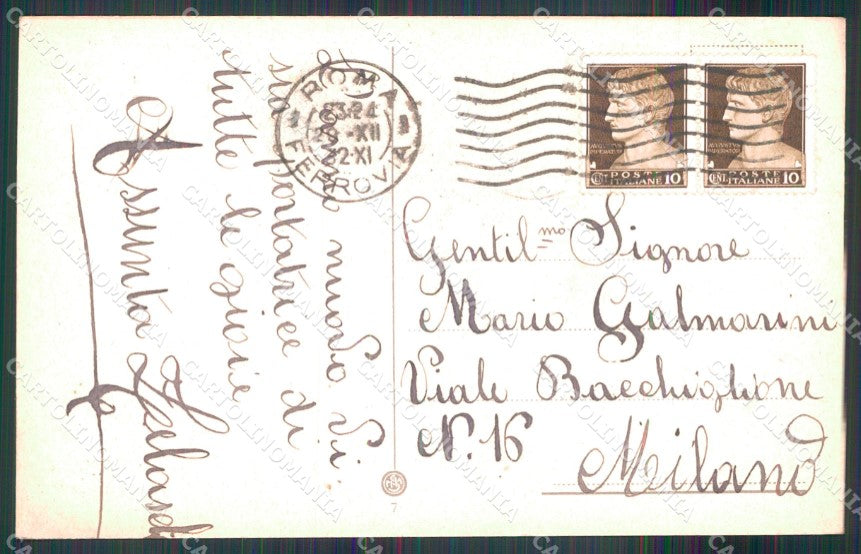 nuovo Vi
sia portatrice di
tutte le gioie
Assunta
ROMA
23-24
-XII
32-XI
FERROVIA
AVGVSTVS
IMPERATOR
CENT.
POSTE
ITALIANE 10
AVGVSTVS
IMPERATOR
CENT.
POSTE
ITALIANE 10
Gentil.mo Signore
Mario Galmarini
Viale Bacchiglione
N. 16
Milano
7
CARTOLINOMANIA